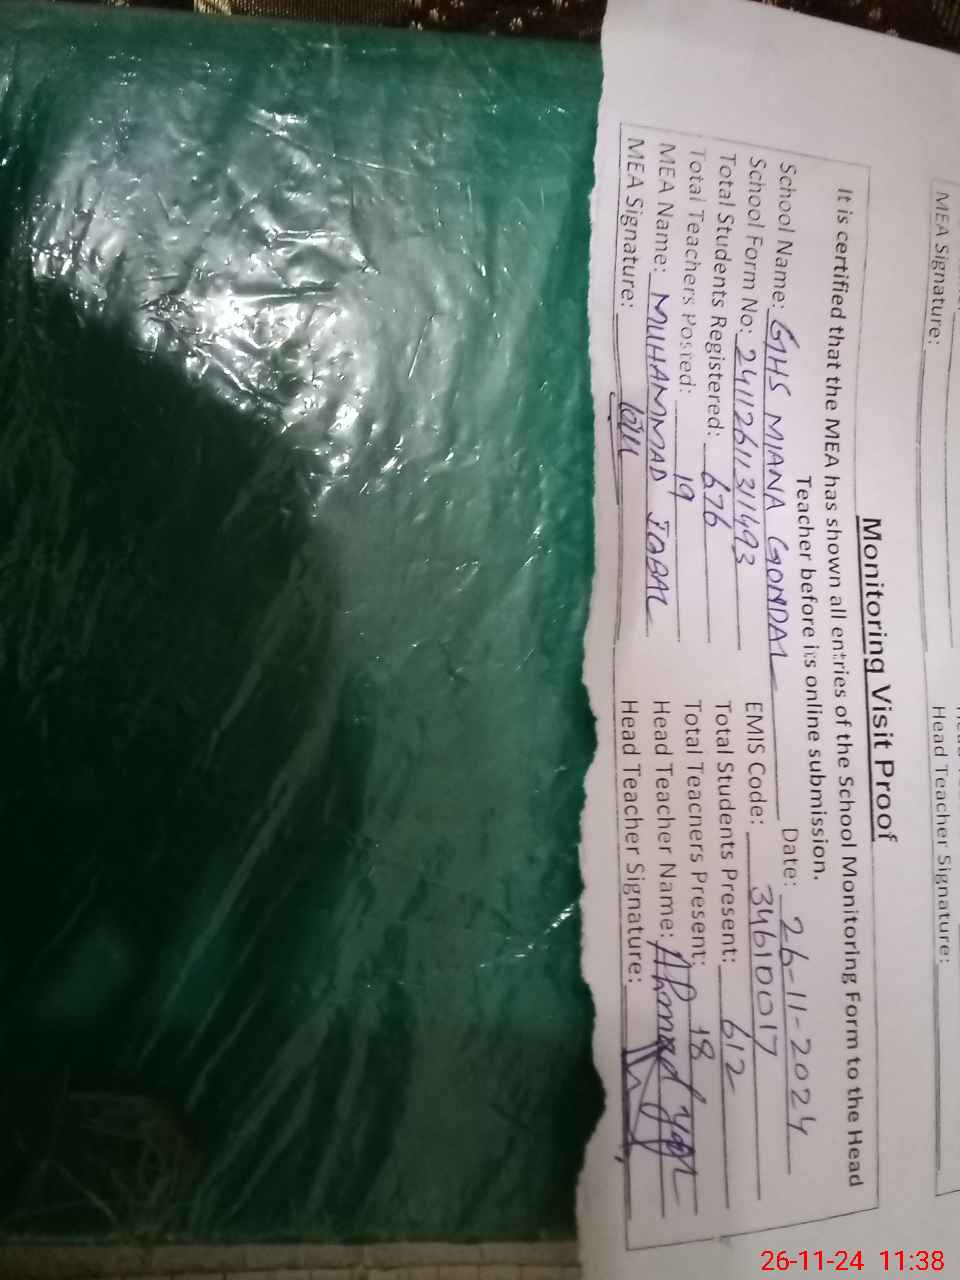 MEA Signature: Head Teacher Signature:
Monitoring Visit Proof
It is certified that the MEA has shown all entries of the School Monitoring Form to the Head
Teacher before its online submission.
School Name: GHS MIANA GONDAL Date: 26-11-2024
School Form No: 241126131493 EMIS Code: 34610017
Total Students Registered: 676 Total Students Present: 612
Total Teachers Posted: 19 Total Teachers Present: 18
MEA Name: MUHAMMAD IQBAL Head Teacher Name: Ahmad
MEA Signature: Head Teacher Signature:
26-11-24 11:38